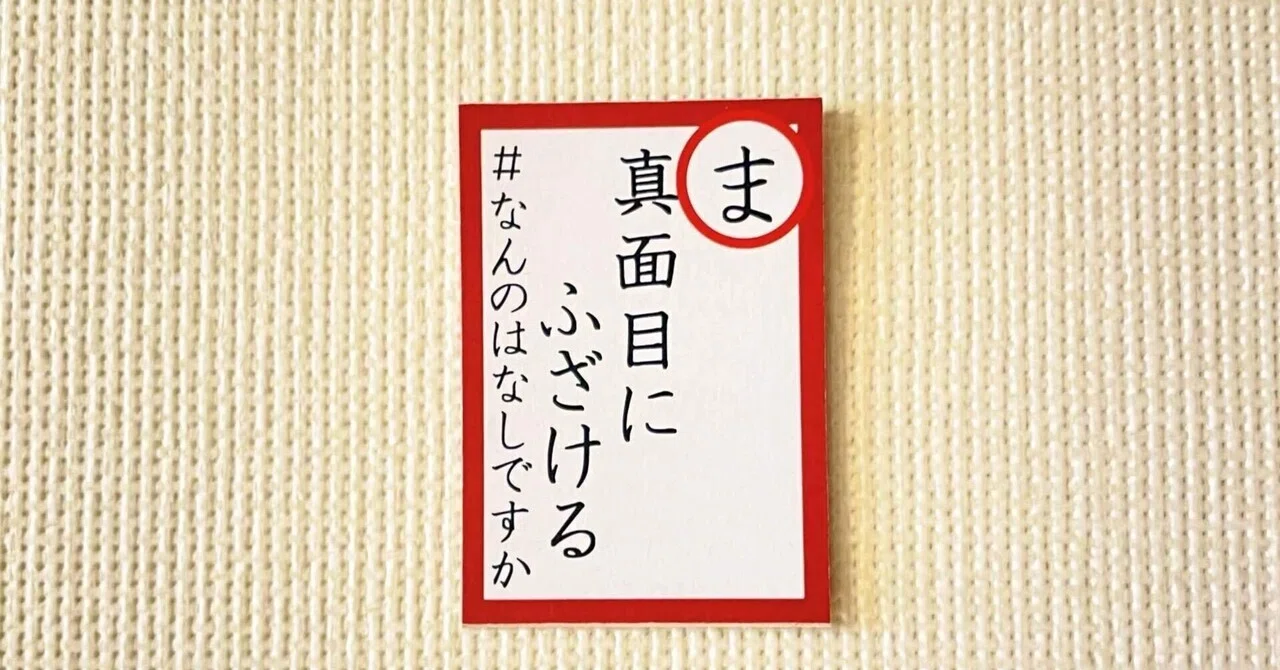 ま
真面目に
ふざける
#なんのはなしですか